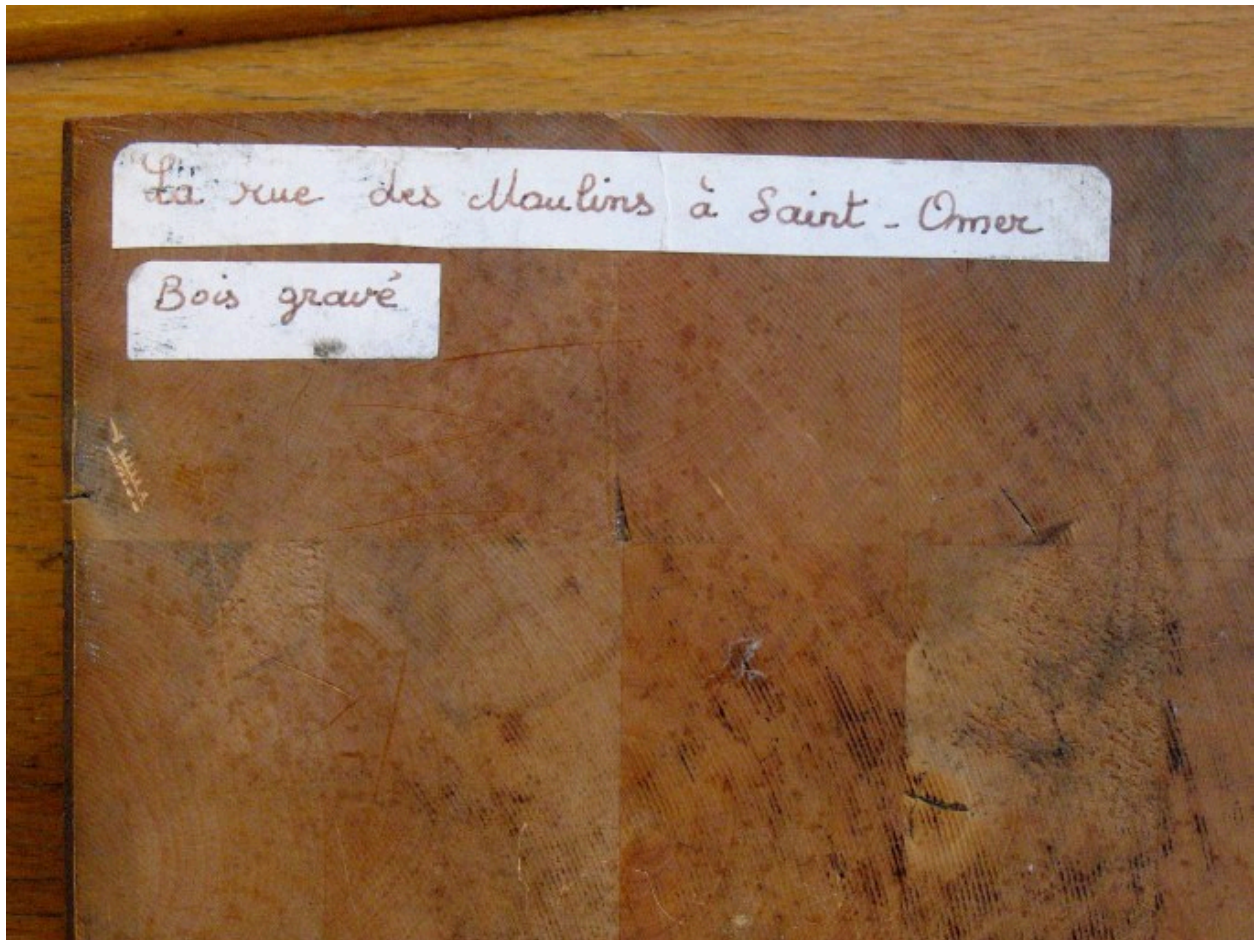 La rue des Moulins à Saint-Omer
Bois gravé